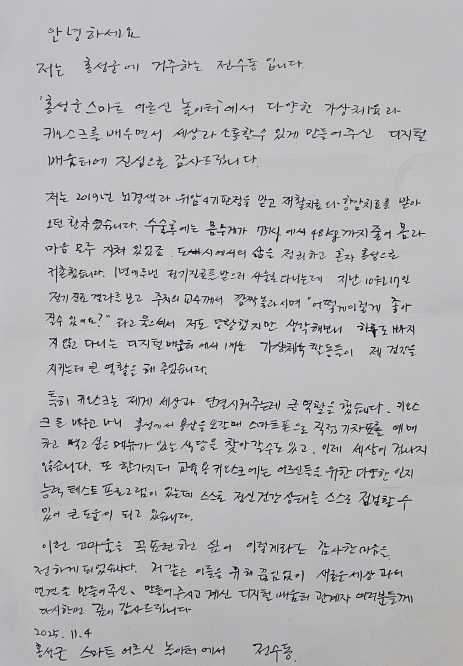 안녕하세요
저는 홍성군에 거주하는 전수동 입니다.
'홍성군 스마트 어르신 놀이터'에서 다양한 가상체험과
키오스크를 배우면서 세상과 소통할수 있게 만들어주신 디지털
배움터에 진심으로 감사드립니다.
저는 2019년 뇌경색과 위암4기판정을 받고 재활치료와 항암치료를 받아
오던 환자였습니다. 수술후에는 몸무게가 73kg에서 48kg까지 줄어 몸과
마음 모두 지쳐 있었죠. 도시에서의 삶을 정리하고 혼자 홍성으로
귀촌했습니다. 1년에 두번 정기진료를 받으러 서울로 다니는데 지난 10월17일
정기진료 결과를 보고 주치의 교수께서 깜짝 놀라시며 "어떻게 이렇게 좋아
질수 있어요?" 라고 물으셔서 저도 당황했지만 생각해보니 하루도 빠지
지 않고 다니는 디지털 배움터에서 배운 가상체육 활동들이 제 건강을
지키는데 큰 역할을 해 주었습니다.
특히 키오스크는 제게 세상과 연결시켜주는데 큰 역할을 했습니다. 키오스
크를 배우고 나니 홍성에서 용산을 오갈때 스마트폰으로 직접 기차표를 예매
하고 먹고 싶은 메뉴가 있는 식당을 찾아갈수도 있고, 이제 세상이 겁나지
않습니다. 또 한가지더 교육용 키오스크에는 어르신들을 위한 다양한 인지
능력 테스트 프로그램이 있는데 스스로 정신건강상태를 스스로 점검할 수
있어 큰 도움이 되고 있습니다.
이런 고마움을 꼭 표현하고 싶어 이렇게라도 감사한 마음을
전하게 되었습니다. 저 같은 이들을 위해 끊임없이 새로운 세상과의
연결을 만들어주신, 만들어 주시고 계신 디지털 배움터 관계자 여러분들께
다시한번 깊이 감사드립니다
2025. 11. 4
홍성군 스마트 어르신 놀이터에서 전수동.